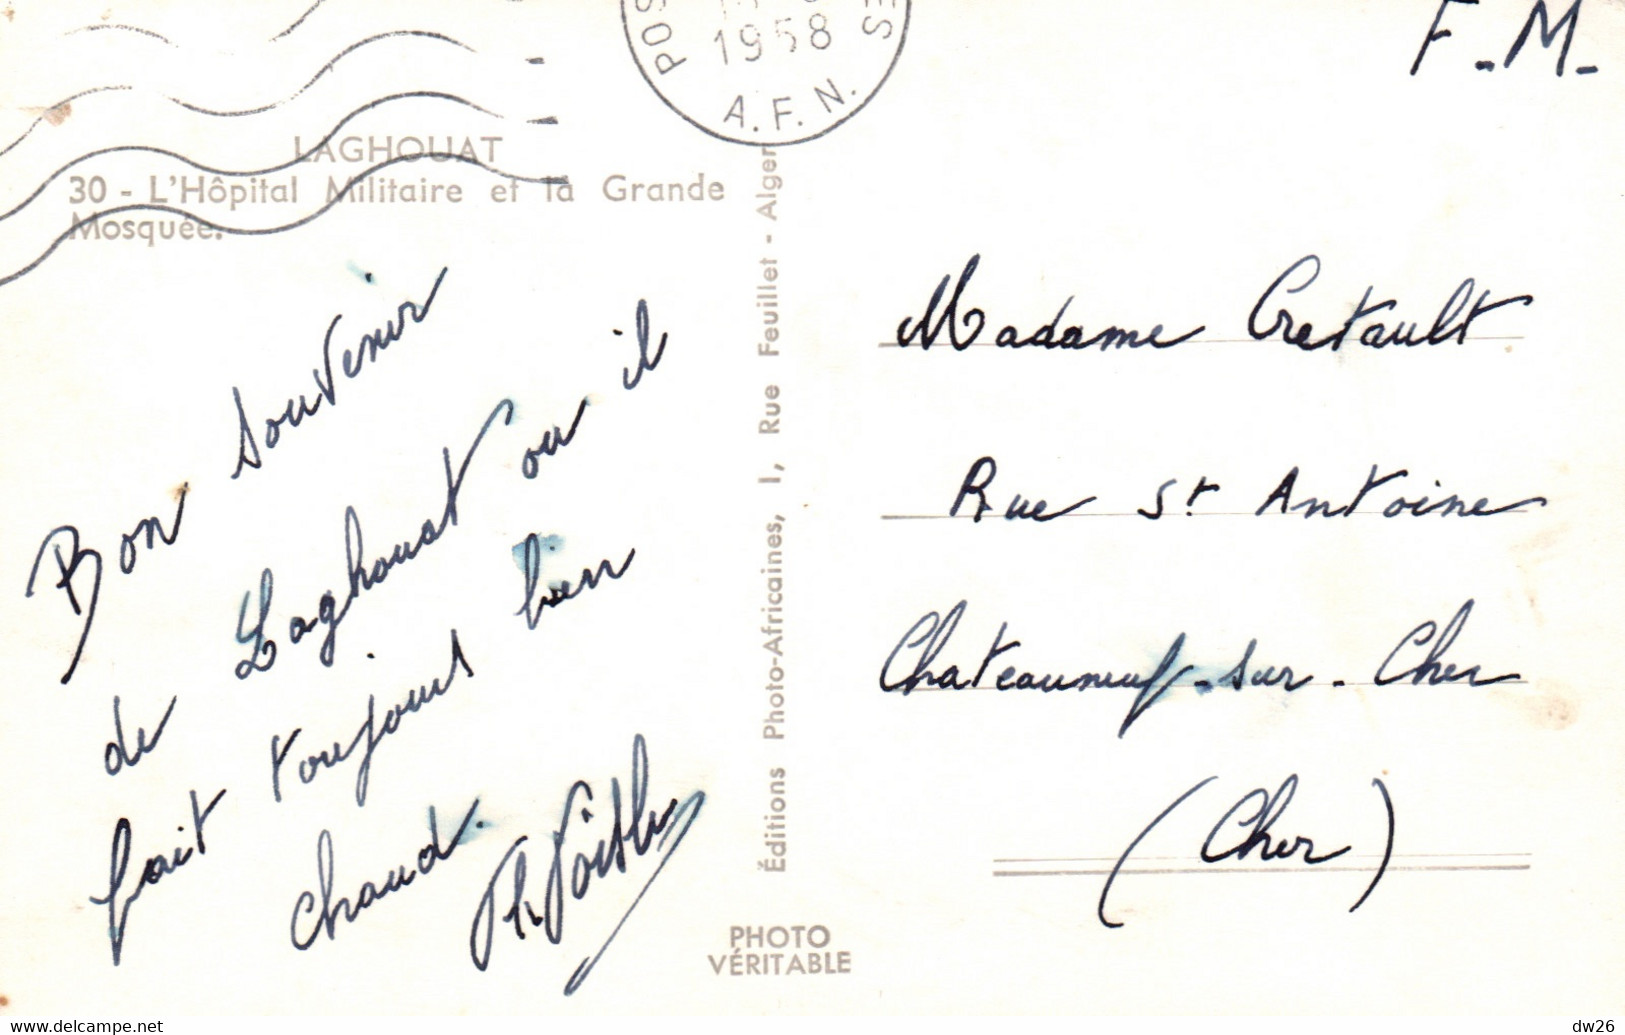 POS
1958
SE
A.F.N.
F.M.
LAGHOUAT
30 - L'Hôpital Militaire et la Grande
Mosquée.
Bon souvenir
de Laghouat ou il
fait toujours bien
chaud.
Éditions Photo-Africaines, 1, Rue Feuillet - Alger
PHOTO
VÉRITABLE
Madame Cretault
Rue St Antoine
Chateauneuf-sur-Cher
(Cher)
delcampe.net
dw26